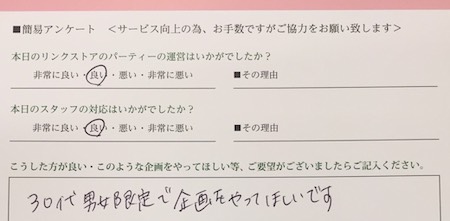 ■簡易アンケート ＜サービス向上の為、お手数ですがご協力をお願い致します＞
本日のリンクストアのパーティーの運営はいかがでしたか？
非常に良い・良い・悪い・非常に悪い ■その理由
本日のスタッフの対応はいかがでしたか？
非常に良い・良い・悪い・非常に悪い ■その理由
こうした方が良い・このような企画をやってほしい等、ご要望がございましたらご記入ください。
30代男女限定で企画をやってほしいです